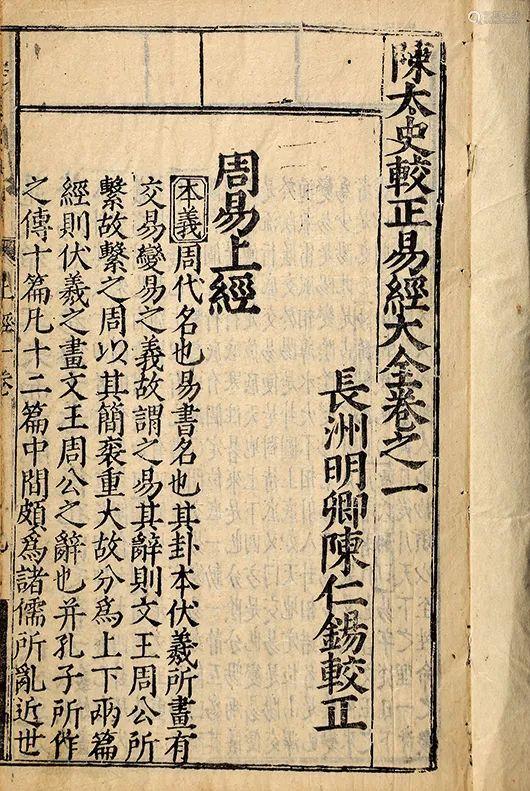 陳太史較正易經大全卷之一
長洲明卿陳仁錫較正
周易上經
本義周代名也易書名也其卦本伏羲所畫有
交易變易之義故謂之易其辭則文王周公所
繫故繫之周以其簡袠重大故分為上下兩篇
經則伏羲之畫文王周公之辭也并孔子所作
之傳十篇凡十二篇中間頗為諸儒所亂近世
上經一卷